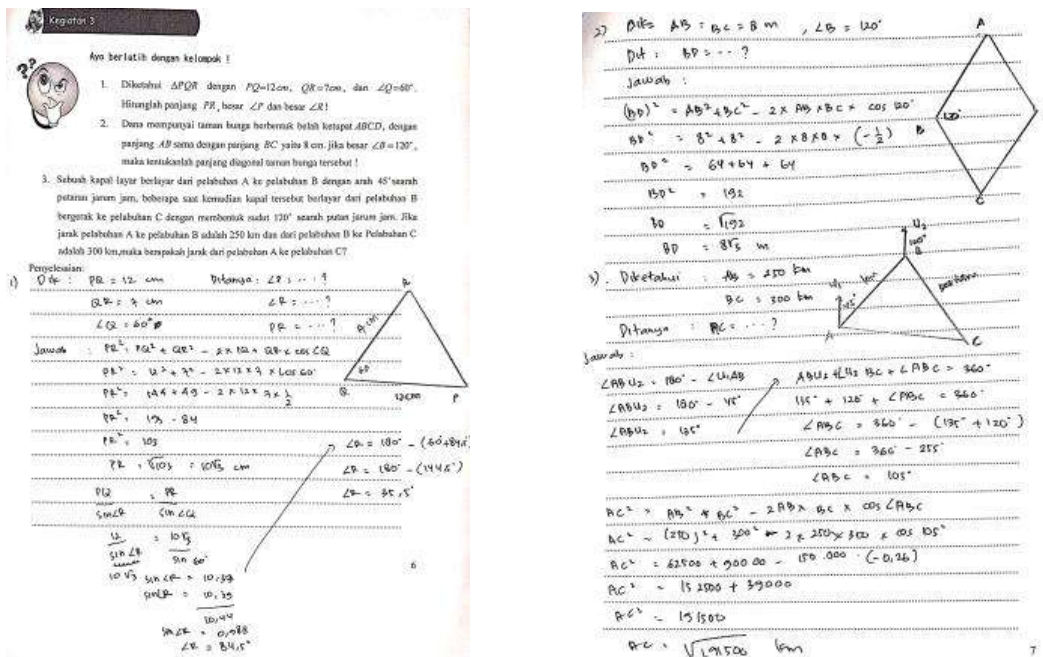 Kegiatan 3
Ayo berlatih dengan kelompok !
1. Diketahui ΔPQR dengan PQ=12cm, QR=7cm, dan ∠Q=60°.
Hitunglah panjang PR, besar ∠P dan besar ∠R!
2. Dana mempunyai taman bunga berbentuk belah ketupat ABCD, dengan
panjang AB sama dengan panjang BC yaitu 8 cm. jika besar ∠B=120°,
maka tentukanlah panjang diagonal taman bunga tersebut !
3. Sebuah kapal layar berlayar dari pelabuhan A ke pelabuhan B dengan arah 45° searah
putaran jarum jam, beberapa saat kemudian kapal tersebut berlayar dari pelabuhan B
bergerak ke pelabuhan C dengan membentuk sudut 120° searah putan jarum jam. Jika
jarak pelabuhan A ke pelabuhan B adalah 250 km dan dari pelabuhan B ke Pelabuhan C
adalah 300 km,maka berapakah Jarak dari pelabuhan A ke pelabuhan C?
Penyelesaian:
1) Dik : PQ = 12 cm Ditanya : ∠P : ... ?
QR = 7 cm ∠R = ... ?
∠Q = 60° PR = ... ?
Jawab : PR² = PQ² + QR² - 2 x PQ x QR x cos ∠Q
PR² = 12² + 7² - 2 x 12 x 7 x cos 60°
PR² = 144 + 49 - 2 x 12 x 7 x 1/2
PR² = 193 - 84
PR² = 103
PR = √103 = 10√3 cm
PQ / sin∠R = PR / sin ∠Q
12 / sin ∠R = 10√3 / sin 60°
10√3 sin ∠R = 10,39
sin∠R = 10,39 / 10,44
sin ∠R = 0,988
∠R = 84,5°
∠R = 180° - (60°+84,5°)
∠R = 180° - (144,5°)
∠R = 35,5°
R
60
Q
12cm
P
6
2) Dik = AB = BC = 8 m , ∠B = 120°
Dit : BD = ... ?
Jawab :
(BD)² = AB² + BC² - 2 x AB x BC x cos 120°
BD² = 8² + 8² - 2 x 8 x 8 x (-1/2)
BD² = 64 + 64 + 64
BD² = 192
BD = √192
BD = 8√3 m
A
B
120°
C
3). Diketahui : AB = 250 km
BC = 300 km
Ditanya : AC = ... ?
Jawab :
U₂
B
U₁
45°
A
C
∠ABU₂ = 180° - ∠U₁AB
∠ABU₂ = 180° - 45°
∠ABU₂ = 135°
ABU₂ + ∠U₂ BC + ∠ABC = 360°
135° + 120° + ∠ABC = 360°
∠ABC = 360° - (135° + 120°)
∠ABC = 360° - 255°
∠ABC = 105°
AC² = AB² + BC² - 2AB x BC x cos ∠ABC
AC² = (250)² + 300² - 2 x 250 x 300 x cos 105°
AC² = 62500 + 90000 - 150.000 . (-0,26)
AC² = 152500 + 39000
AC² = 191500
AC = √191500 km
7